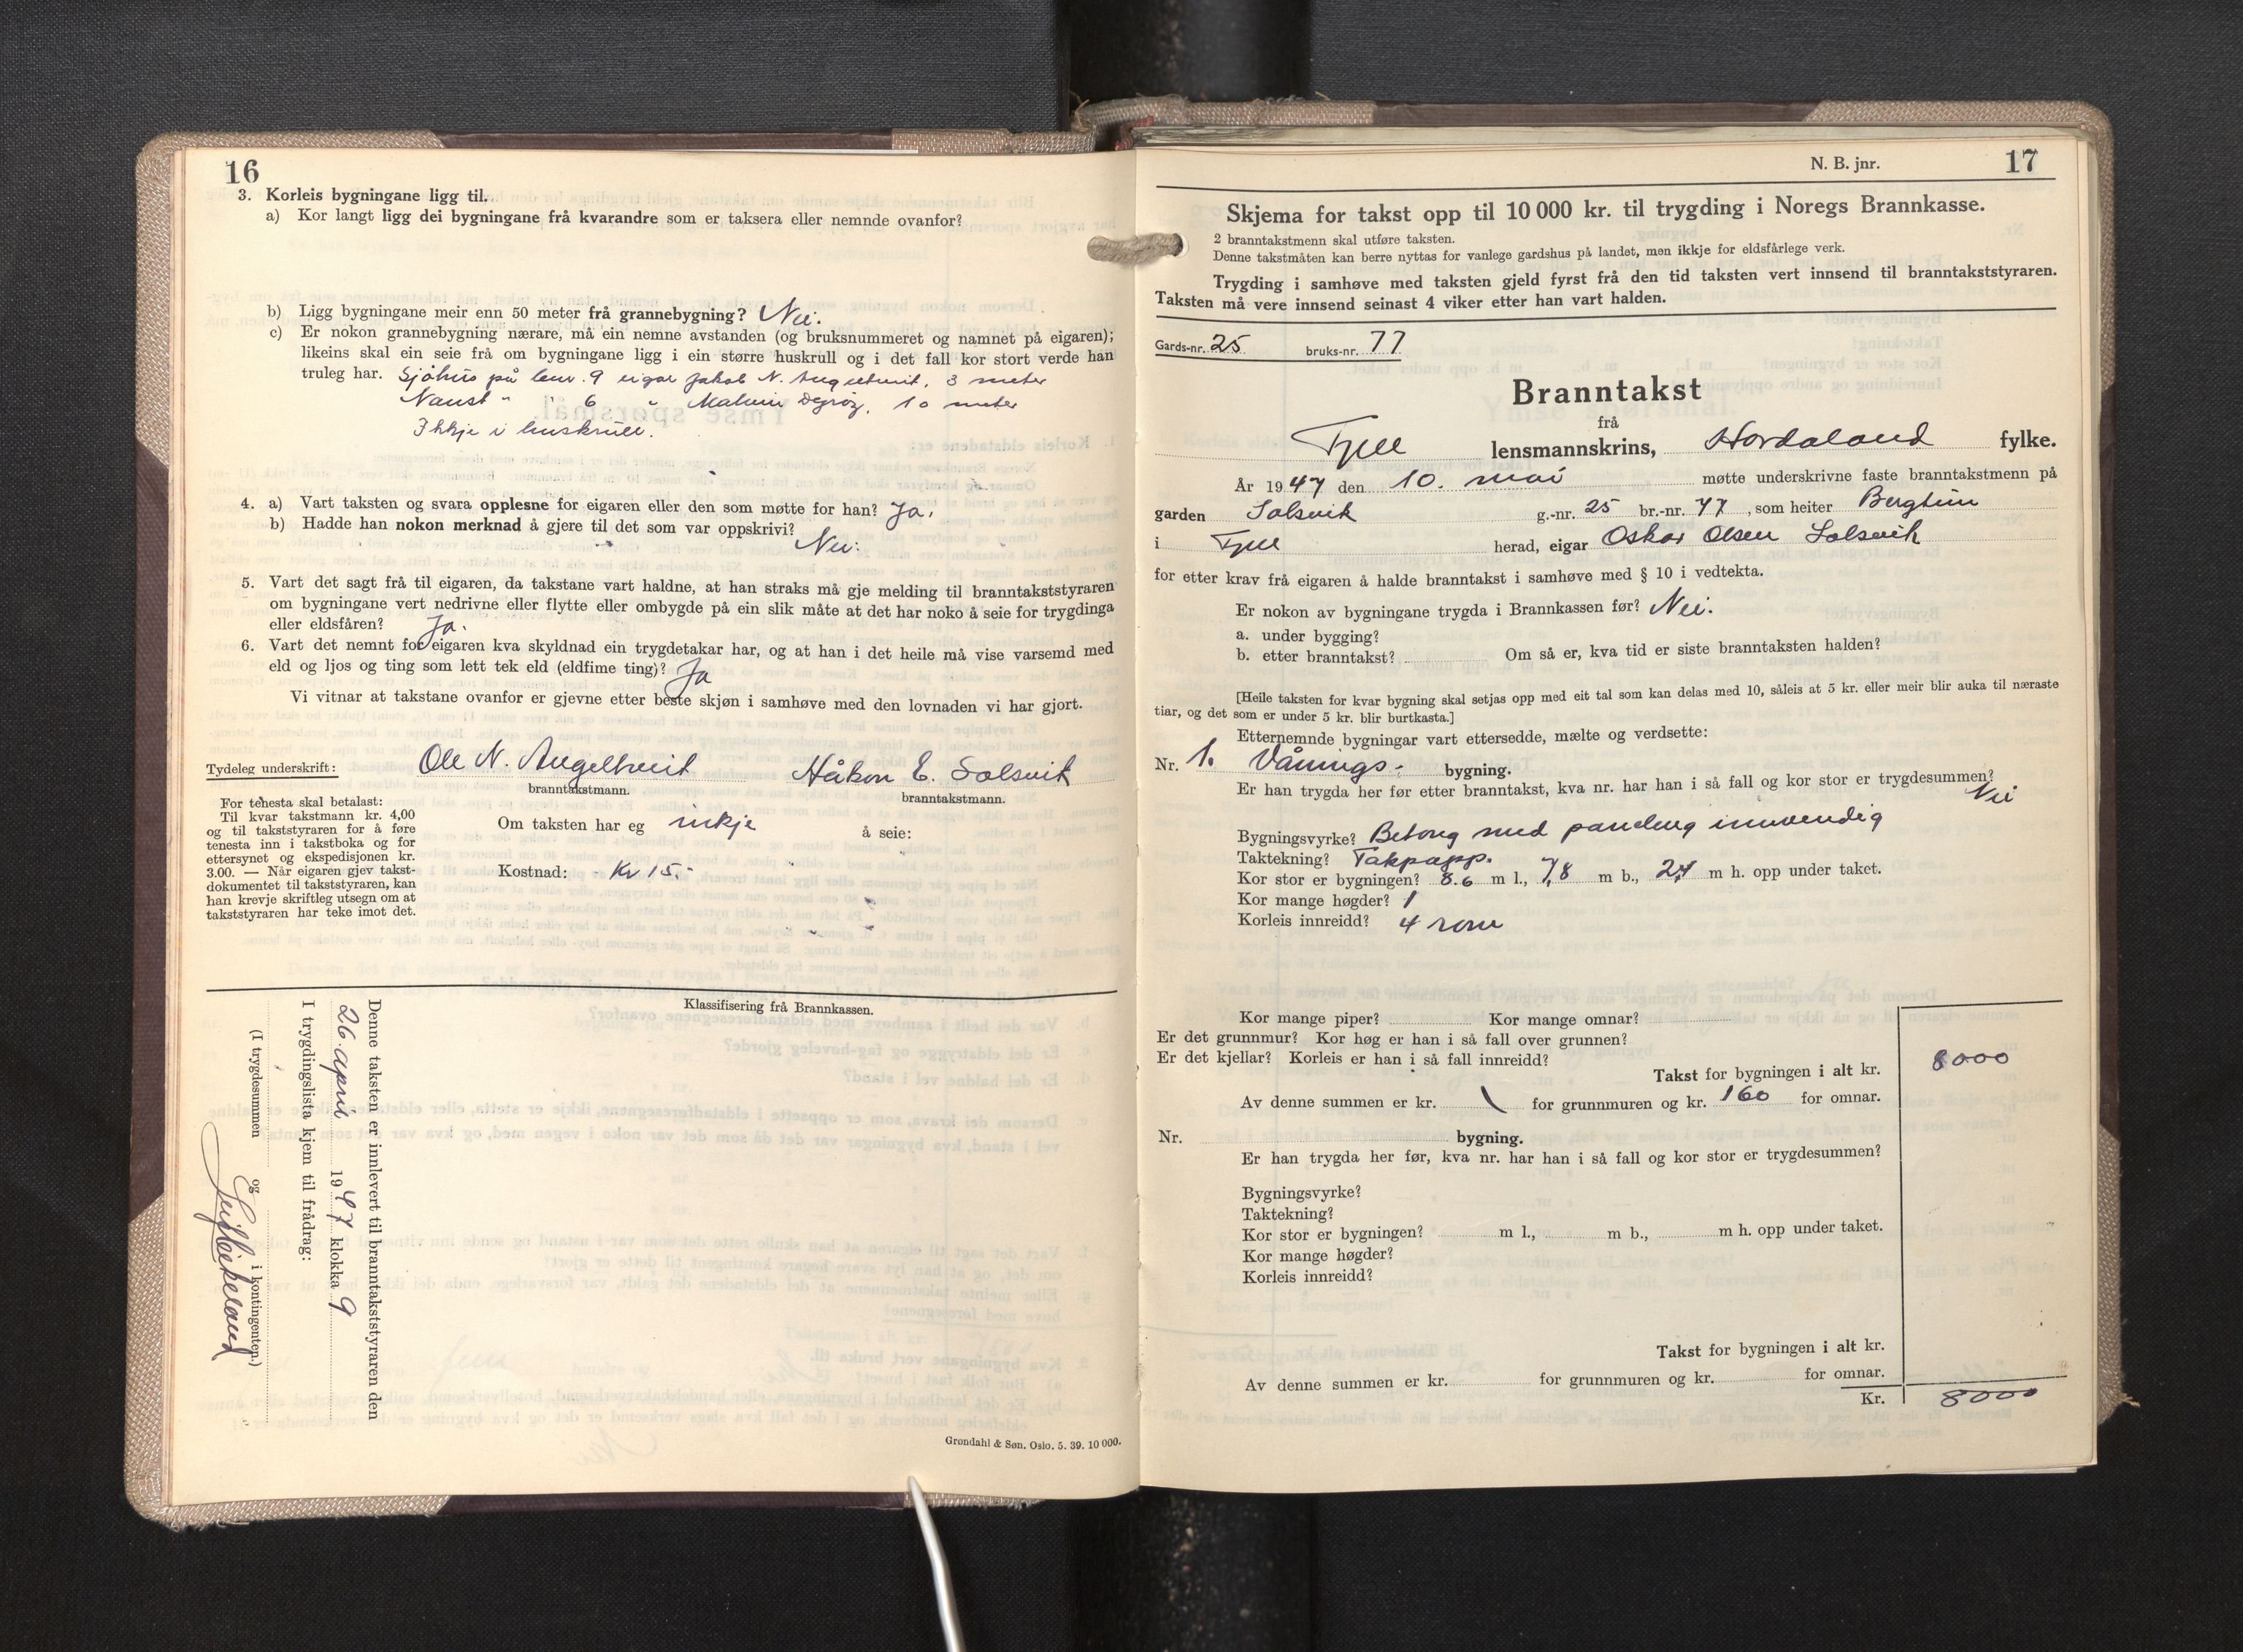 16
3. Korleis bygningane ligg til.
a) Kor langt ligg dei bygningane frå kvarandre som er taksera eller nemnde ovanfor?
b) Ligg bygningane meir enn 50 meter frå grannebygning? Nei.
c) Er nokon grannebygning nærare, må ein nemne avstanden (og bruksnummeret og namnet på eigaren);
likeins skal ein seie frå om bygningane ligg i ein større huskrull og i det fall kor stort verde han
truleg har. Sjøhus på bnr. 9 eigar Jakob N. Angeltveit, 3 meter
Naust " " 6 " Malvin 10 meter
Ikkje i huskrull.
4. a) Vart taksten og svara opplesne for eigaren eller den som møtte for han? Ja.
b) Hadde han nokon merknad å gjere til det som var oppskrivi?
Nei.
5. Vart det sagt frå til eigaren, da takstane vart haldne, at han straks må gje melding til branntakststyraren
om bygningane vert nedrivne eller flytte eller ombygde på ein slik måte at det har noko å seie for trygdinga
eller eldsfåren? Ja.
6. Vart det nemnt for eigaren kva skyldnad ein trygdetakar har, og at han i det heile må vise varsemd med
eld og ljos og ting som lett tek eld (eldfime ting)? Ja
Vi vitnar at takstane ovanfor er gjevne etter beste skjøn i samhøve med den lovnaden vi har gjort.
Tydeleg underskrift: Ole N. Angeltveit Håkon E. Solsvik
branntakstmann. branntakstmann.
For tenesta skal betalast:
Til kvar takstmann kr. 4,00
og til takststyraren for å føre
tenesta inn i takstboka og for
ettersynet og ekspedisjonen kr.
3.00. — Når eigaren gjev takst-
dokumentet til takststyraren, kan
han krevje skriftleg utsegn om at
takststyraren har teke imot det.
Om taksten har eg inkje å seie:
Kostnad: Kr 15.-
Klassifisering frå Brannkassen.
Denne taksten er innlevert til branntakststyraren den
26. april 1947 klokka 9
I trygdingslista kjem til frådrag:
(I trygdesummen og i kontingenten.)
Grøndahl & Søn. Oslo. 5. 39. 10 000.
N. B. jnr. 17
Skjema for takst opp til 10 000 kr. til trygding i Noregs Brannkasse.
2 branntakstmenn skal utføre taksten.
Denne takstmåten kan berre nyttas for vanlege gardshus på landet, men ikkje for eldsfårlege verk.
Trygding i samhøve med taksten gjeld fyrst frå den tid taksten vert innsend til branntakststyraren.
Taksten må vere innsend seinast 4 viker etter han vart halden.
Gards-nr. 25 bruks-nr. 77
Branntakst
frå
Fjell lensmannskrins, Hordaland fylke.
År 1947 den 10. mai møtte underskrivne faste branntakstmenn på
garden Solsvik g.-nr. 25 br.-nr. 77, som heiter Bergtun
i Fjell herad, eigar Oskar Olsen Solsvik
for etter krav frå eigaren å halde branntakst i samhøve med § 10 i vedtekta.
Er nokon av bygningane trygda i Brannkassen før? Nei.
a. under bygging?
b. etter branntakst? Om så er, kva tid er siste branntaksten halden?
[Heile taksten for kvar bygning skal setjas opp med eit tal som kan delas med 10, såleis at 5 kr. eller meir blir auka til næraste
tiar, og det som er under 5 kr. blir burtkasta.]
Etternemnde bygningar vart ettersedde, mælte og verdsette:
Nr. 1. Vånings- bygning.
Er han trygda her før etter branntakst, kva nr. har han i så fall og kor stor er trygdesummen?
Nei
Bygningsvyrke? Betong med paneling innvendig
Taktekning? Takpapp.
Kor stor er bygningen? 8.6 m l., 7,8 m b., 2,7 m h. opp under taket.
Kor mange høgder? 1
Korleis innreidd? 4 rom
Kor mange piper? Kor mange omnar?
Er det grunnmur? Kor høg er han i så fall over grunnen?
Er det kjellar? Korleis er han i så fall innreidd?
Takst for bygningen i alt kr. 8000
Av denne summen er kr. \ for grunnmuren og kr. 160 for omnar.
Nr. bygning.
Er han trygda her før, kva nr. har han i så fall og kor stor er trygdesummen?
Bygningsvyrke?
Taktekning?
Kor stor er bygningen? m l., m b., m h. opp under taket.
Kor mange høgder?
Korleis innreidd?
Takst for bygningen i alt kr.
Av denne summen er kr. for grunnmuren og kr. for omnar.
Kr. 8000